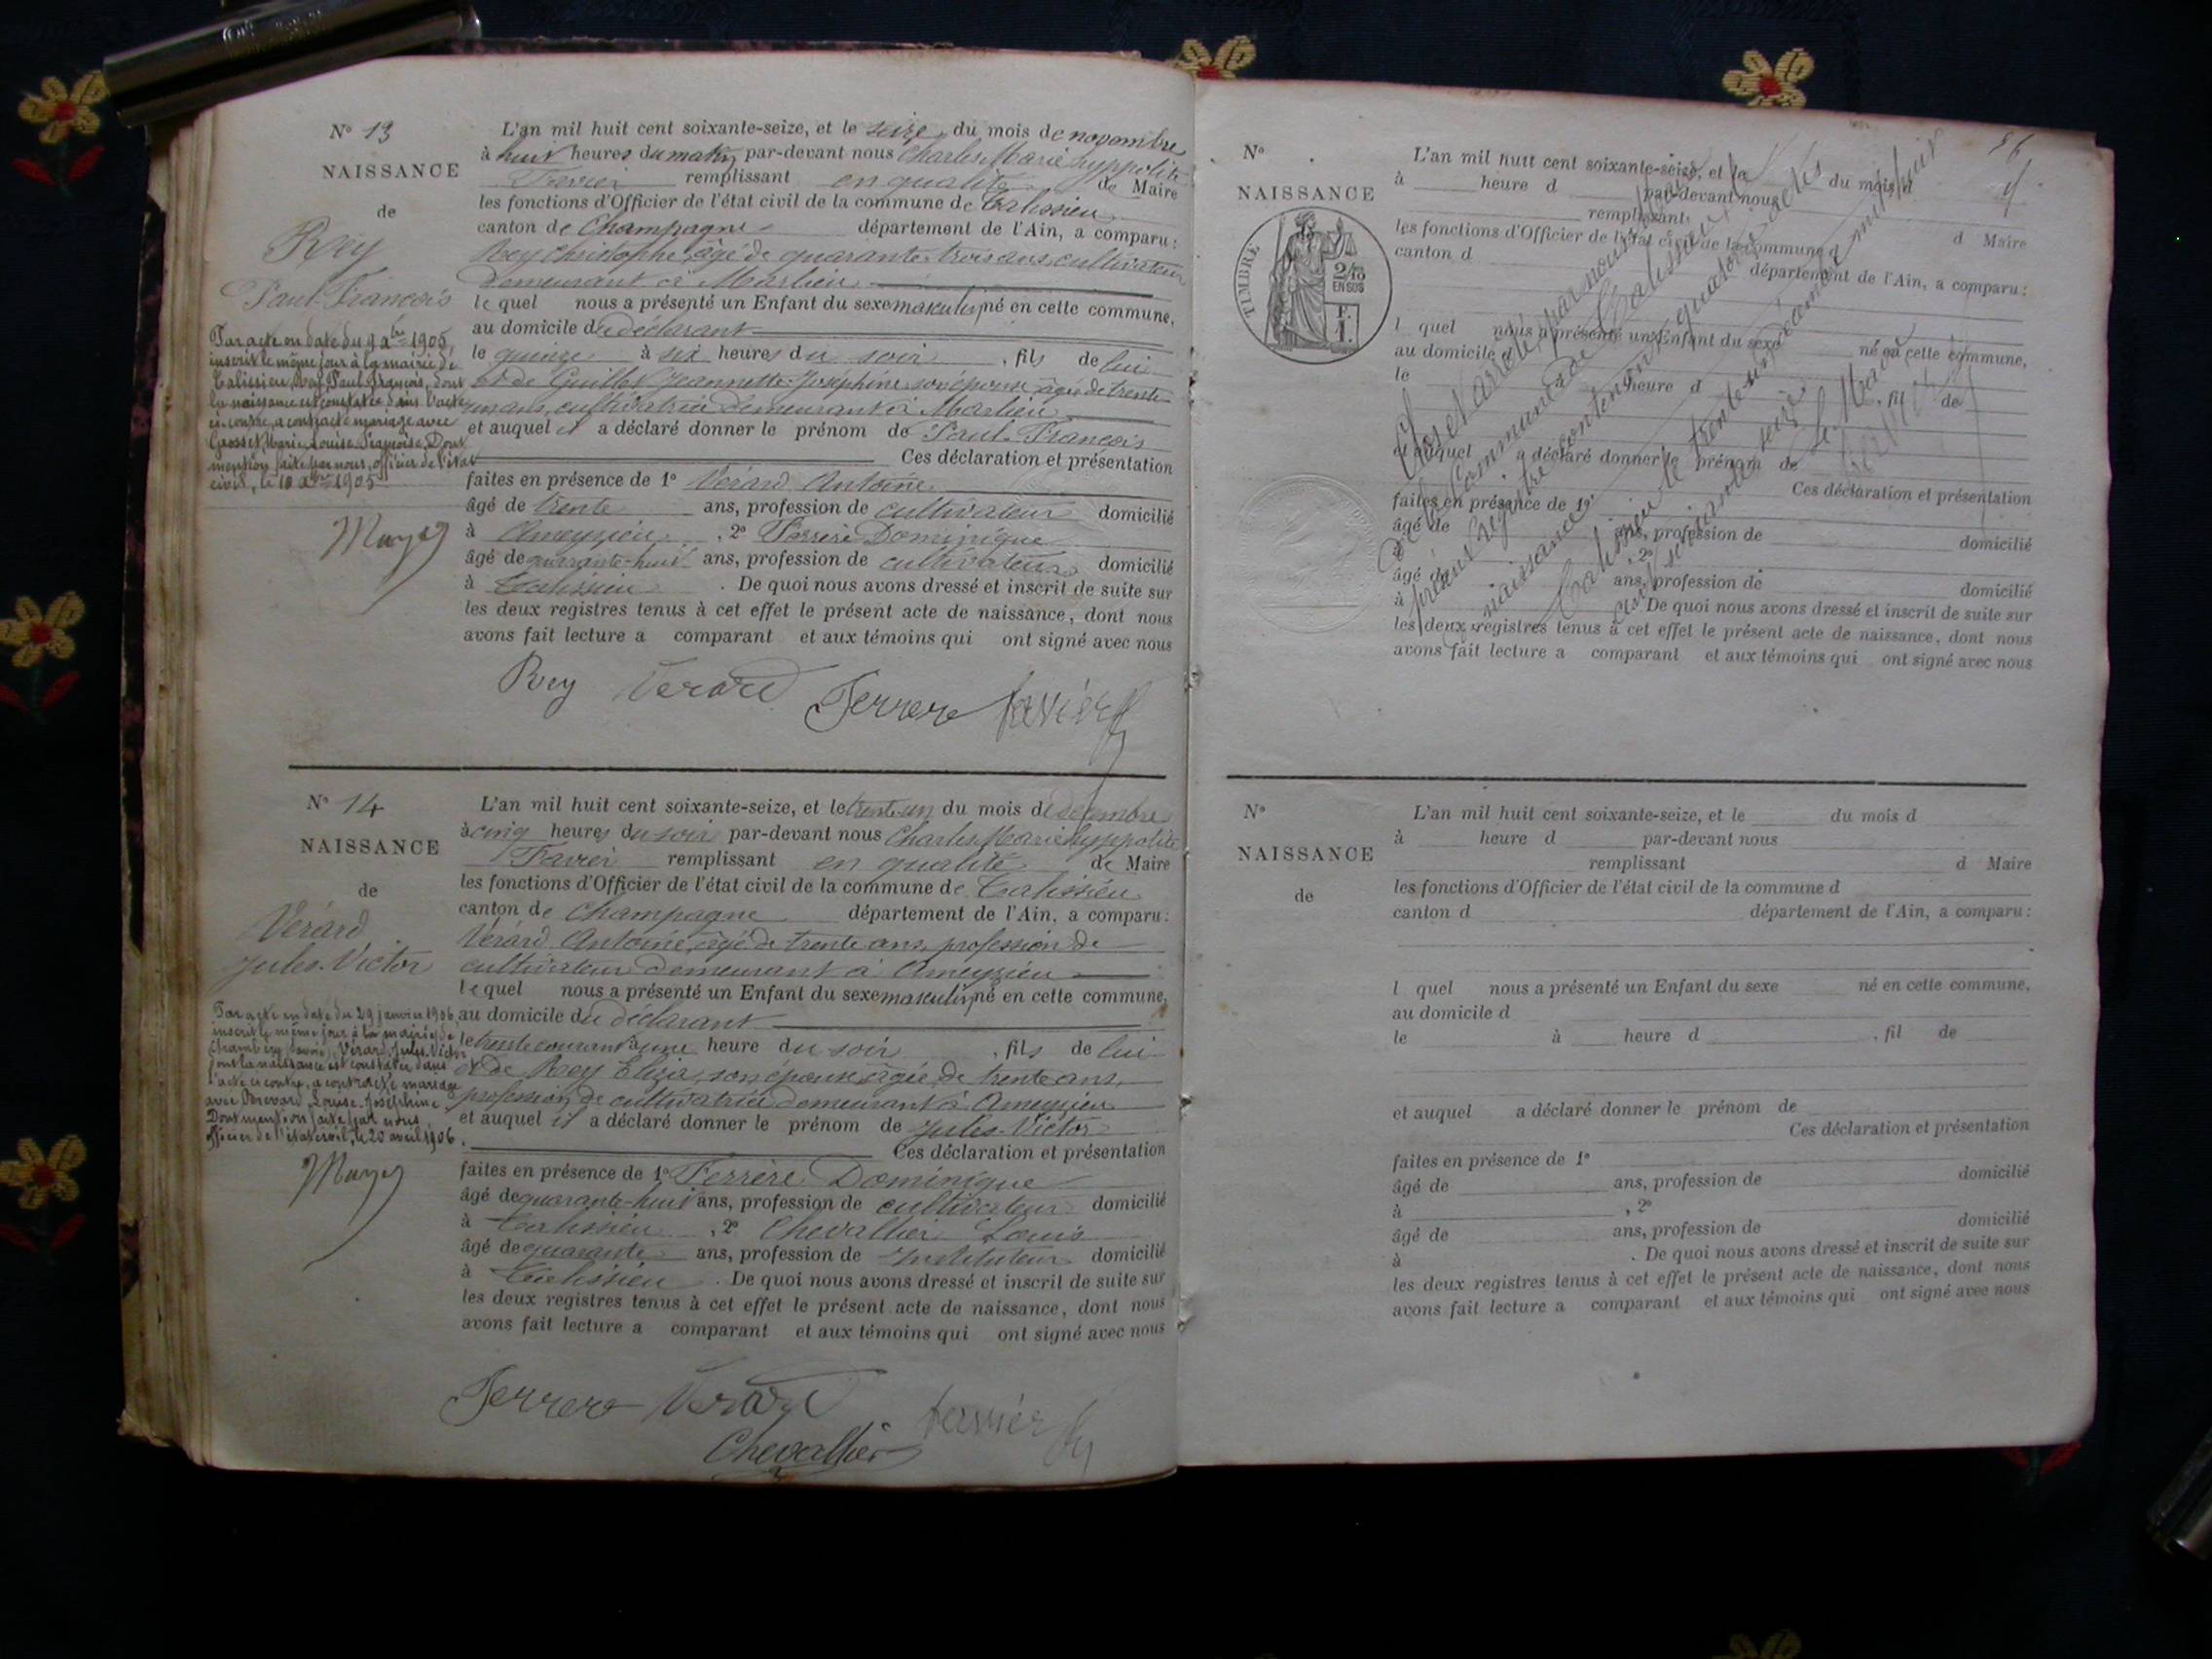 N° 13
NAISSANCE
de
Rey
Paul François
Par acte en date du 9 xbre 1905,
inscrit le même jour à la mairie de
Talissieu, Rey Paul François, dont
la naissance est constatée dans l'acte
ci-contre, a contracté mariage avec
Grosset Marie Louise Françoise. Dont
mention faite par nous, officier de l'état
civil, le 10 xbre 1905
L'an mil huit cent soixante-seize, et le seize du mois de novembre
à huit heures du matin, par-devant nous Charles Marie hyppolite
Favier remplissant en qualité de Maire
les fonctions d'Officier de l'état civil de la commune de Talissieu
canton de Champagne département de l'Ain, a comparu:
Rey Christophe, âgé de quarante-trois ans, cultivateur
demeurant à Marlieu
lequel nous a présenté un Enfant du sexe masculin, né en cette commune,
au domicile du déclarant
le quinze à six heures du soir, fils de lui
et de Guillet Jeannette Joséphine son épouse âgée de trente
un ans, cultivatrice demeurant à Marlieu
et auquel il a déclaré donner le prénom de Paul François
Ces déclaration et présentation
faites en présence de 1° Vérard Antoine
âgé de trente ans, profession de cultivateur domicilié
à Ameyzieu, 2° Ferrère Dominique
âgé de quarante-huit ans, profession de cultivateur domicilié
à Talissieu. De quoi nous avons dressé et inscrit de suite sur
les deux registres tenus à cet effet le présent acte de naissance, dont nous
avons fait lecture a comparant et aux témoins qui ont signé avec nous
Rey Verard Ferrere favier
N° 14
NAISSANCE
de
Vérard
Jules-Victor
Par acte en date du 29 janvier 1906,
inscrit le même jour à la mairie de
Chambéry (Savoie), Vérard Jules-Victor
dont la naissance est constatée dans
l'acte ci contre, a contracté mariage
avec Louise-Joséphine
Dont mention faite par nous
officier de l'état civil, le 20 avril 1906.
L'an mil huit cent soixante-seize, et le trente-un du mois de décembre
à cinq heures du soir par-devant nous Charles Marie hyppolite
Favier remplissant en qualité de Maire
les fonctions d'Officier de l'état civil de la commune de Talissieu
canton de Champagne département de l'Ain, a comparu:
Vérard Antoine, âgé de trente ans, profession de
cultivateur demeurant à Ameyzieu
lequel nous a présenté un Enfant du sexe masculin, né en cette commune,
au domicile du déclarant
le trente courant à une heure du soir, fils de lui
et de Rey Eliza, son épouse, âgée de trente ans,
profession de cultivatrice demeurant à Ameyzieu
et auquel il a déclaré donner le prénom de Jules-Victor
Ces déclaration et présentation
faites en présence de 1° Ferrère Dominique
âgé de quarante-huit ans, profession de cultivateur domicilié
à Talissieu, 2° Chevallier Louis
âgé de quarante ans, profession de Instituteur domicilié
à Talissieu. De quoi nous avons dressé et inscrit de suite sur
les deux registres tenus à cet effet le présent acte de naissance, dont nous
avons fait lecture a comparant et aux témoins qui ont signé avec nous
Ferrere Verard favier
Chevallier
N°
NAISSANCE
TIMBRE
2/10
EN SUS
F.
1.
L'an mil huit cent soixante-seize, et le du mois d
à heure d par-devant nous
remplissant d Maire
les fonctions d'Officier de l'état civil de la commune d
canton d département de l'Ain, a comparu:
l quel nous a présenté un Enfant du sexe né en cette commune,
au domicile d
le heure d , fil de
et auquel a déclaré donner le prénom de
Ces déclaration et présentation
faites en présence de 1°
âgé de ans, profession de domicilié
à , 2°
âgé de ans, profession de domicilié
à . De quoi nous avons dressé et inscrit de suite sur
les deux registres tenus à cet effet le présent acte de naissance, dont nous
avons fait lecture a comparant et aux témoins qui ont signé avec nous
Clos et arrêté par nous Maire
de la Commune de Talissieu, le
présent registre contenant quatorze actes
de naissance
Talissieu le trente un décembre mil huit
cent soixante seize
Le Maire
favier
N°
NAISSANCE
de
L'an mil huit cent soixante-seize, et le du mois d
à heure d par-devant nous
remplissant d Maire
les fonctions d'Officier de l'état civil de la commune d
canton d département de l'Ain, a comparu:
l quel nous a présenté un Enfant du sexe né en cette commune,
au domicile d
le à heure d , fil de
et auquel a déclaré donner le prénom de
Ces déclaration et présentation
faites en présence de 1°
âgé de ans, profession de domicilié
à , 2°
âgé de ans, profession de domicilié
à . De quoi nous avons dressé et inscrit de suite sur
les deux registres tenus à cet effet le présent acte de naissance, dont nous
avons fait lecture a comparant et aux témoins qui ont signé avec nous